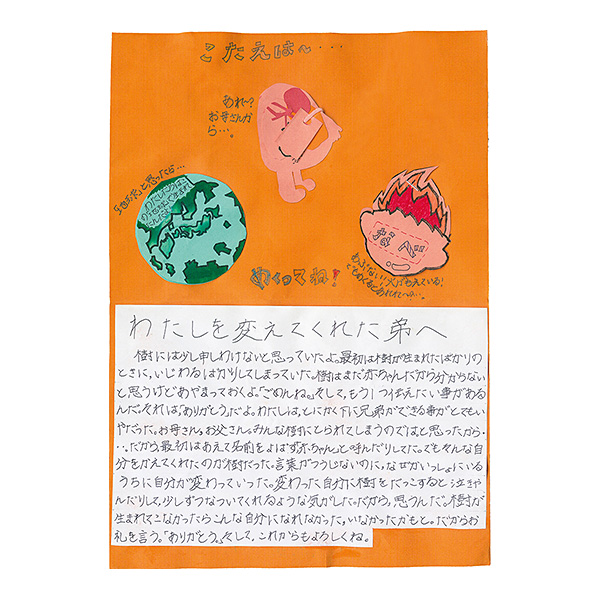 こたえは〜・・・
あれ〜?
お母さんか
ら…。
「地球だ」と思ったら…
わたし
なべ
あぶない!火がもえている!
めくってね!
わたしを変えてくれた弟へ
樹には少し申しわけないと思っていたよ。最初は樹が生まれたばかりの
ときに、いじわるばかりしてしまっていた。樹はまだ赤ちゃんだから分からない
と思うけどあやまっておくよ。「ごめんね。」そして、もう1つ伝えたい事がある
んだ。それは「ありがとう」だよ。わたしは、とにかく下に兄弟ができる事がとてもい
やだった。お母さん、お父さん。みんな樹にとられてしまうのではと思ったから・
・・。だから、最初はあえて名前をよばず「赤ちゃん」と呼んだりしてた。でもそんな自
分をかえてくれたのが樹だった。言葉がつうじないのに、なぜかいっしょにいる
うちに自分が変わっていった。変わった自分に樹をだっこすると泣きや
んだりして、少しずつなついてくれるような気がした。だから、思うんだ。樹が
生まれてこなかったらこんな自分になれなかった、いなかったかもと。だからお
礼を言う。「ありがとう。」そして、これからもよろしくね。